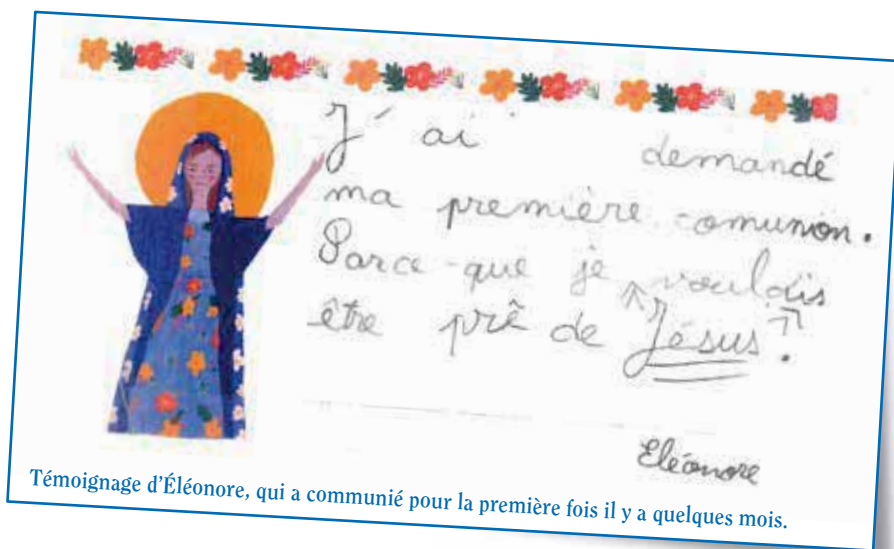 J'ai demandé
ma première comunon.
Parce-que je voulais
être prê de Jésus.
Eléonore
Témoignage d'Éléonore, qui a communié pour la première fois il y a quelques mois.